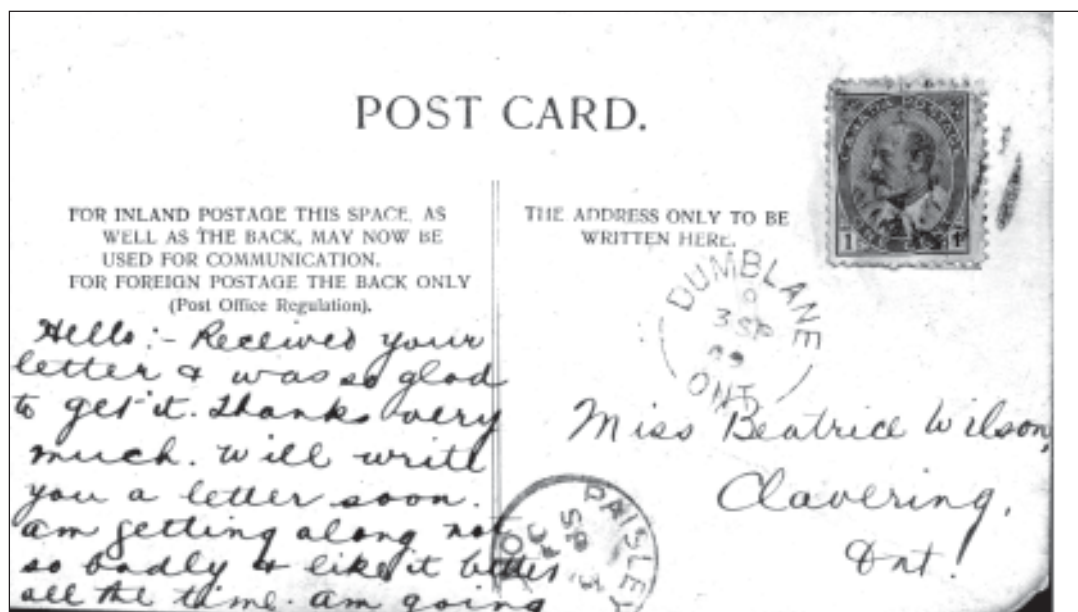 POST CARD.
CANADA POSTAGE
1 1
FOR INLAND POSTAGE THIS SPACE, AS
WELL AS THE BACK, MAY NOW BE
USED FOR COMMUNICATION.
FOR FOREIGN POSTAGE THE BACK ONLY
(Post Office Regulation).
THE ADDRESS ONLY TO BE
WRITTEN HERE.
DUMBLANE
3 SP
09
ONT
Hello:- Received your
letter & was so glad
to get it. Thanks very
much. Will write
you a letter soon.
am getting along not
so badly & like it better
all the time. am going
Miss Beatrice Wilson,
Clavering,
Ont.
PAISLEY
SP 3